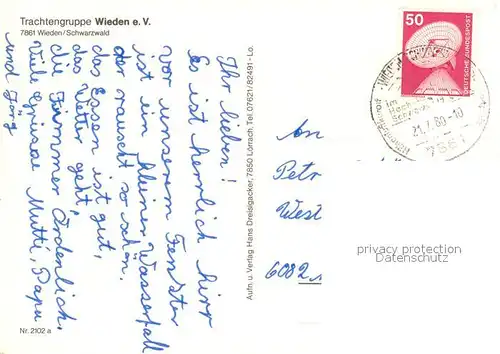 Trachtengruppe Wieden e. V.
7861 Wieden/Schwarzwald
Ihr lieben!
Es ist herrlich hirr
vor unserem Fenster
ist ein kleiner Wasserfall
der rauscht so schön.
das Essen ist gut,
das Wetter geht,
die Zimmer Ordenlich.
Viele Grüsse Mutti, Papa
und Jörg
Nr. 2102 a
Aufn. u. Verlag Hans Dreisigacker, 7850 Lörrach, Tel. 07621/82491 - Lo.
50
DEUTSCHE BUNDESPOST
im
Hoch
21.7.80-10
7861
An
Petr
West
6082
privacy protection
Datenschutz